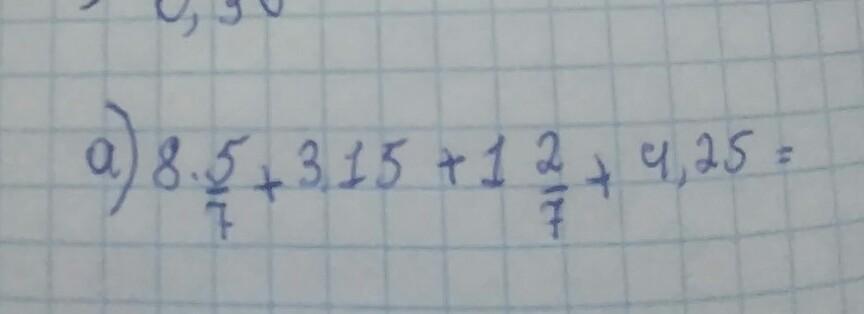 a) 8.5/7 + 3,15 + 1 2/7 + 4,25 =